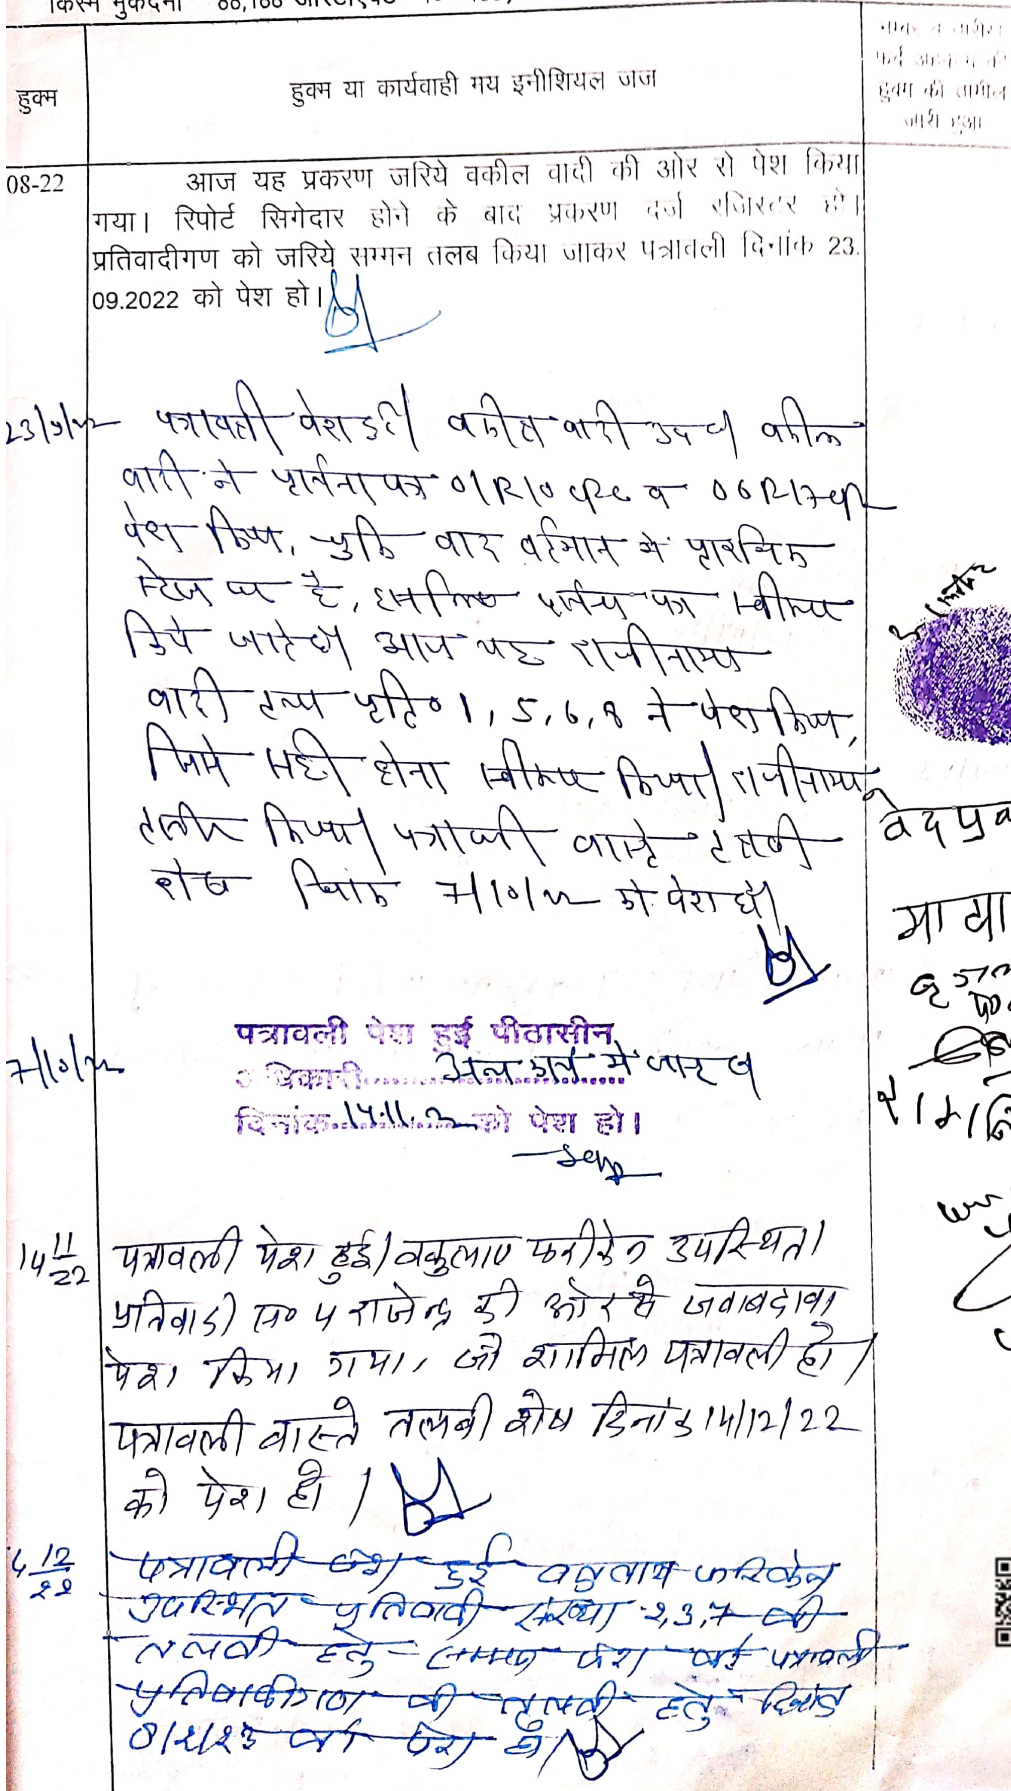 किस्म मुकदमा 88,188
हुक्म
हुक्म या कार्यवाही मय इनीशियल जज
हुक्म की तामील
जारी हुआ
08-22
आज यह प्रकरण जरिये वकील वादी की ओर से पेश किया
गया। रिपोर्ट सिगेदार होने के बाद प्रकरण दर्ज रजिस्टर हो।
प्रतिवादीगण को जरिये सम्मन तलब किया जाकर पत्रावली दिनांक 23.
09.2022 को पेश हो।
23/9/22 पत्रावली पेश हुई। वकील वादी उप०। वकील
वादी ने प्रार्थना पत्र 01R10 CPC व 06R17 CPC
पेश किया, चुकि वाद वर्तमान में प्रारम्भिक
स्टेज पर है, इसलिए स्वीकार
किये जाते है। आज यह राजीनामा
वादी तथा प्रति० 1, 5, 6, 8 ने पेश किया,
जिसे सही होना स्वीकार किया। राजीनामा
तस्दीक किया। पत्रावली वास्ते तलबी
शेष दिनांक 7/10/22 को पेश हो।
वेदप्र
माया
7/10/22
पत्रावली पेश हुई पीठासीन
अधिकारी अन्य कार्य मे व्यस्त
दिनांक 14.11.22 को पेश हो।
14 11/22 पत्रावली पेश हुई। वकुलाए फरीकेन उपस्थित।
प्रतिवादी स० 4 राजेन्द्र की ओर से जवाबदावा
पेश किया गया, जो शामिल पत्रावली हो।
पत्रावली वास्ते तलबी शेष दिनांक 14/12/22
को पेश हो।
12/22 पत्रावली पेश हुई वकुलाय फरिकेन
उपस्थित प्रतिवादी संख्या 2,3,7 की
तलबी हेतु सम्मन पेश पत्रावली
प्रतिवादीगण की तलबी हेतु दिनांक
8/2/23 को पेश हो।